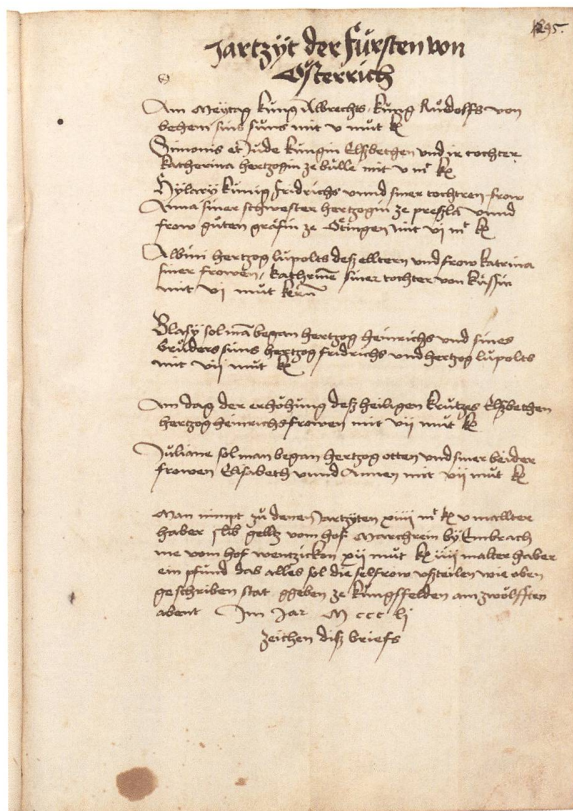 Jartzÿt der Fürsten von
Österrich
Am Meÿtag küng Albrechts küng Rüdolffs von
behem sins süns mit v müt
Simonis et Jude küngin Elsbethen und ir tochter
katherina hertzogin ze bülle mit v mt
Hÿlarÿ künig fridrichs unnd siner tochtren frow
Anna siner schwester hertzogin ze unnd
frow güten gräfin ze Ötingen mit vi mt
Albini hertzog lüpolts deß elltern und frow katrina
siner frowen, siner tochter von
mit vi müt kern
Blasÿ sol man began hertzog heinrichs und sines
brüders süns hertzog fridrichs und hertzog lüpolts
mit vii müt
Am dag der erhöhung deß heiligen krützes Elsbethen
hertzog heinrichs frowen mit vii müt
Juliane sol man began hertzog otten und siner beider
frowen Elisabeth unnd Annen mit vii müt
Man nimpt zü denen Jartzÿten xiiii mt v mallter
haber gellz vom hof Marchrein bÿ Embrach
me vom hof wentzickon xii müt iiii malter haber
ein pfund das alles sol die selfrow ußteilen wie oben
geschriben stat ggeben ze küngsfelden am zwölfften
abent Im Jar M ccc li
zeichen diß briefs